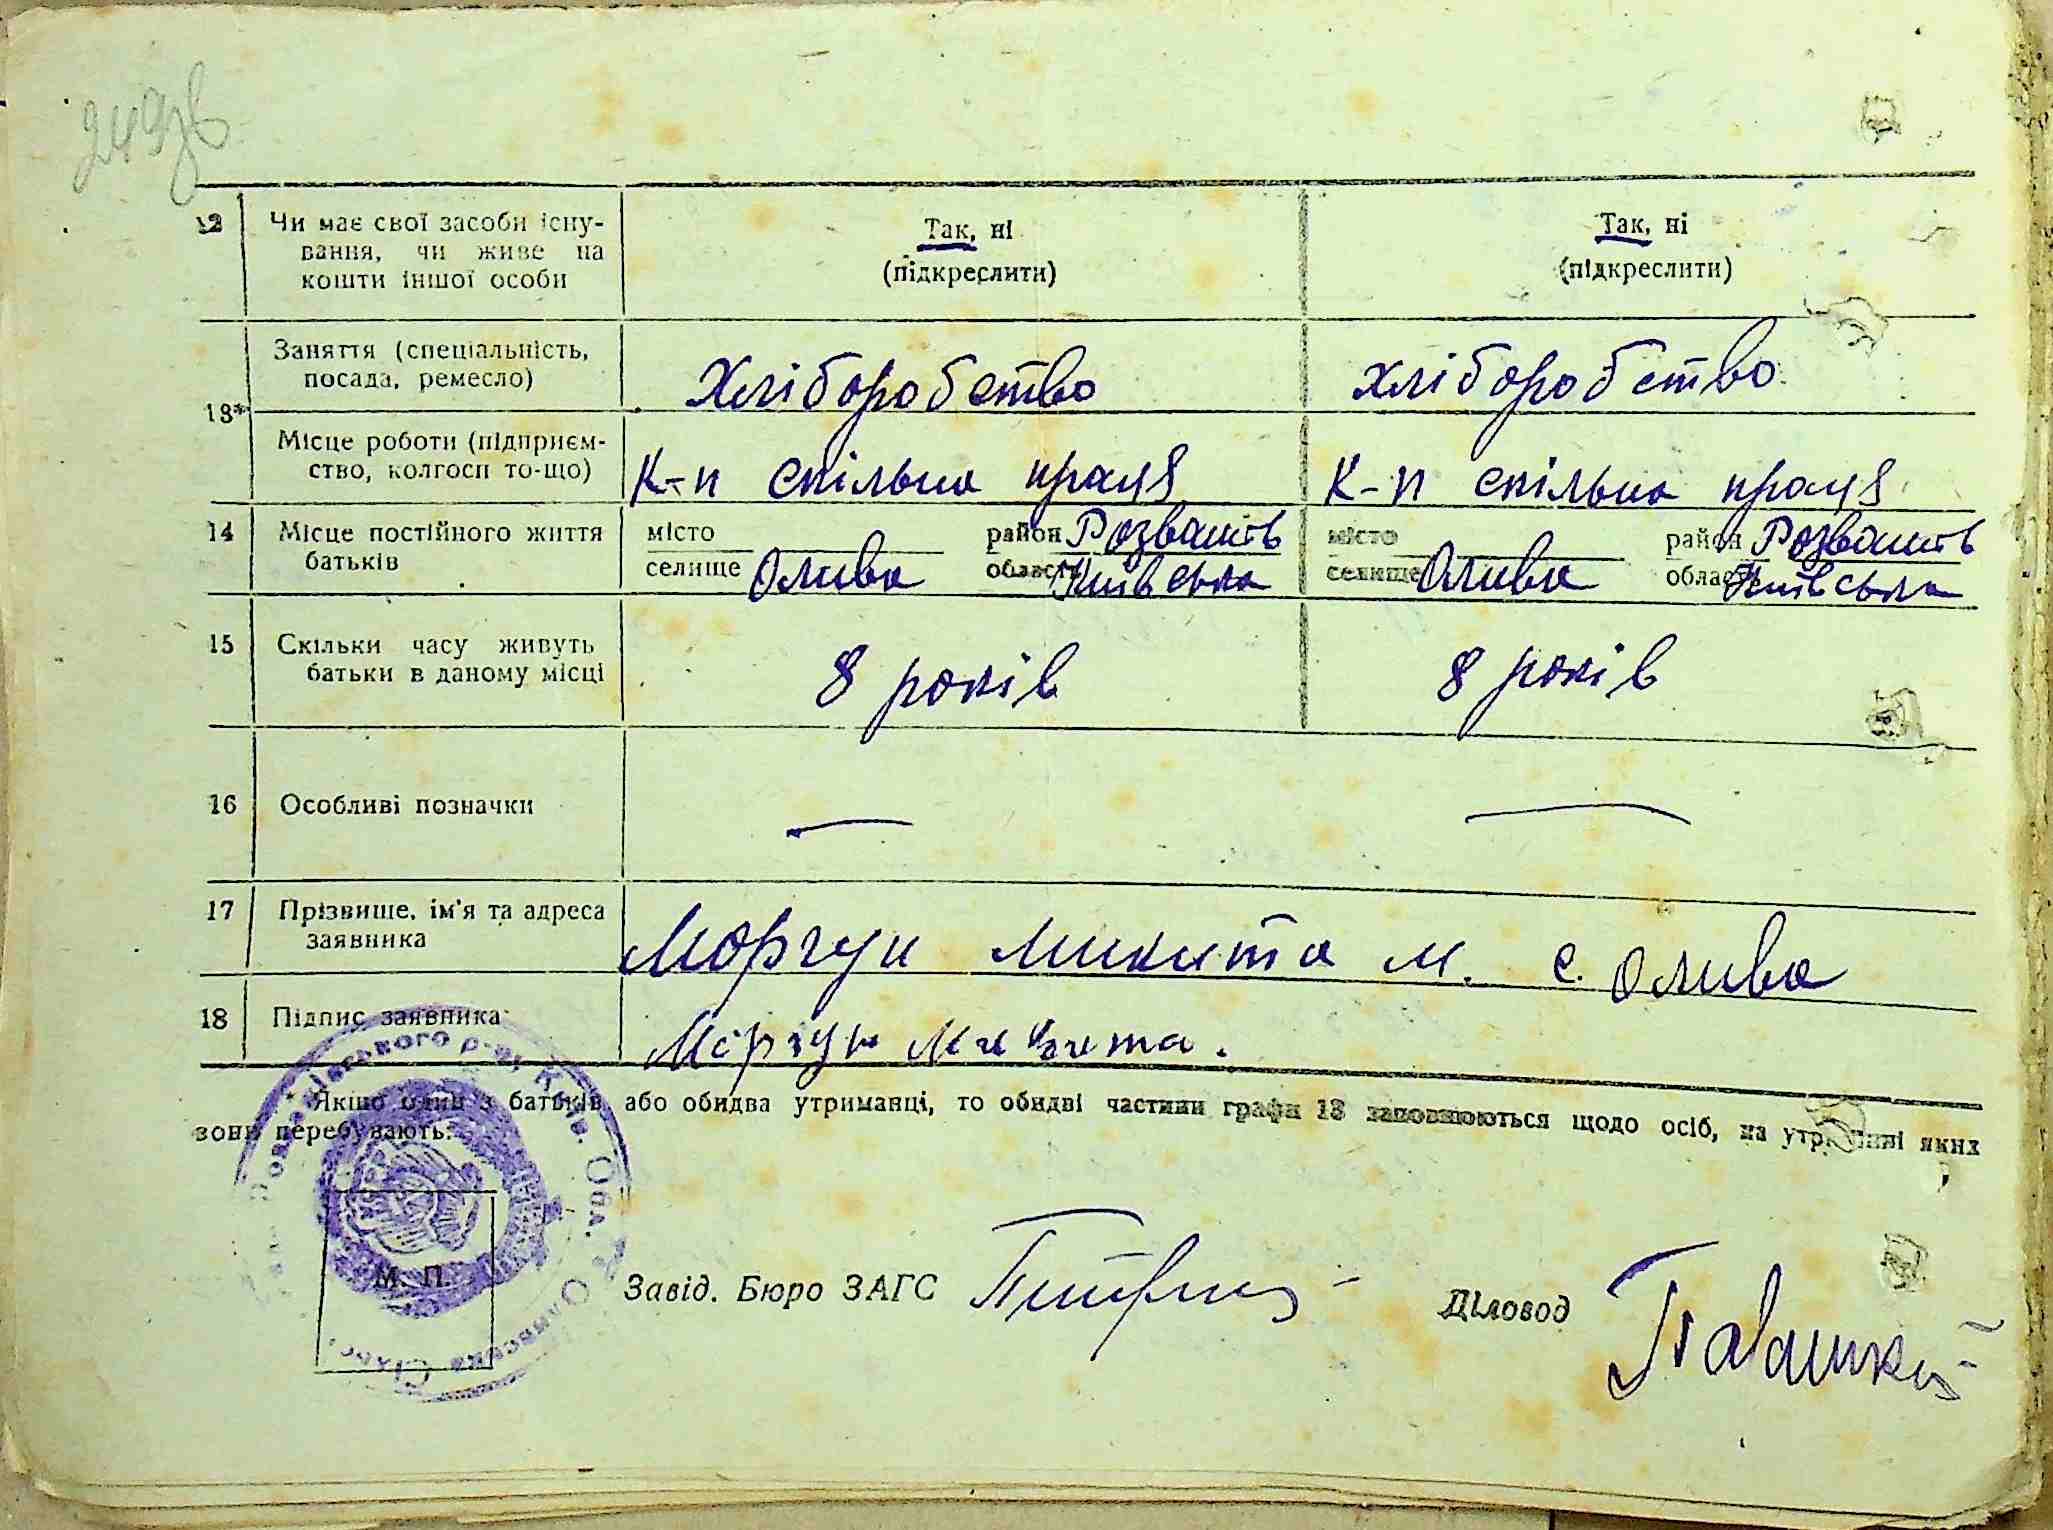 249зв
12 Чи має свої засоби існу-
вання, чи живе на
кошти іншої особи
Так, ні
(підкреслити)
Так, ні
(підкреслити)
13*
Заняття (спеціальність,
посада, ремесло)
Хліборобство
хліборобство
Місце роботи (підприєм-
ство, колгосп то-що)
К-п спільна праця
К-п спільна праця
14 Місце постійного життя
батьків
місто
район Розважів
селище Олива
область Київська
місто
район Розважів
селище Олива
область Київська
15 Скільки часу живуть
батьки в даному місці
8 років
8 років
16 Особливі позначки
—
—
17 Прізвище, ім'я та адреса
заявника
Моргун Микита М. с. Олива
18 Підпис заявника
Моргун Микита.
* Якщо один з батьків або обидва утриманці, то обидві частини графи 13 заповнюються щодо осіб, на утриманні яких
вони перебувають.
М. П.
Розважівського р-ну, Київ. Обл.
Оливська Сільрада
Завід. Бюро ЗАГС
Діловод